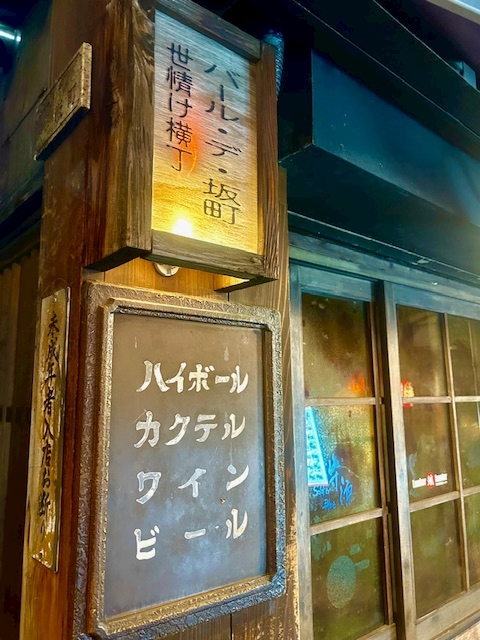 バール・デ・坂町
世情け横丁
ハイボール
カクテル
ワイン
ビール
未成年者入店お断